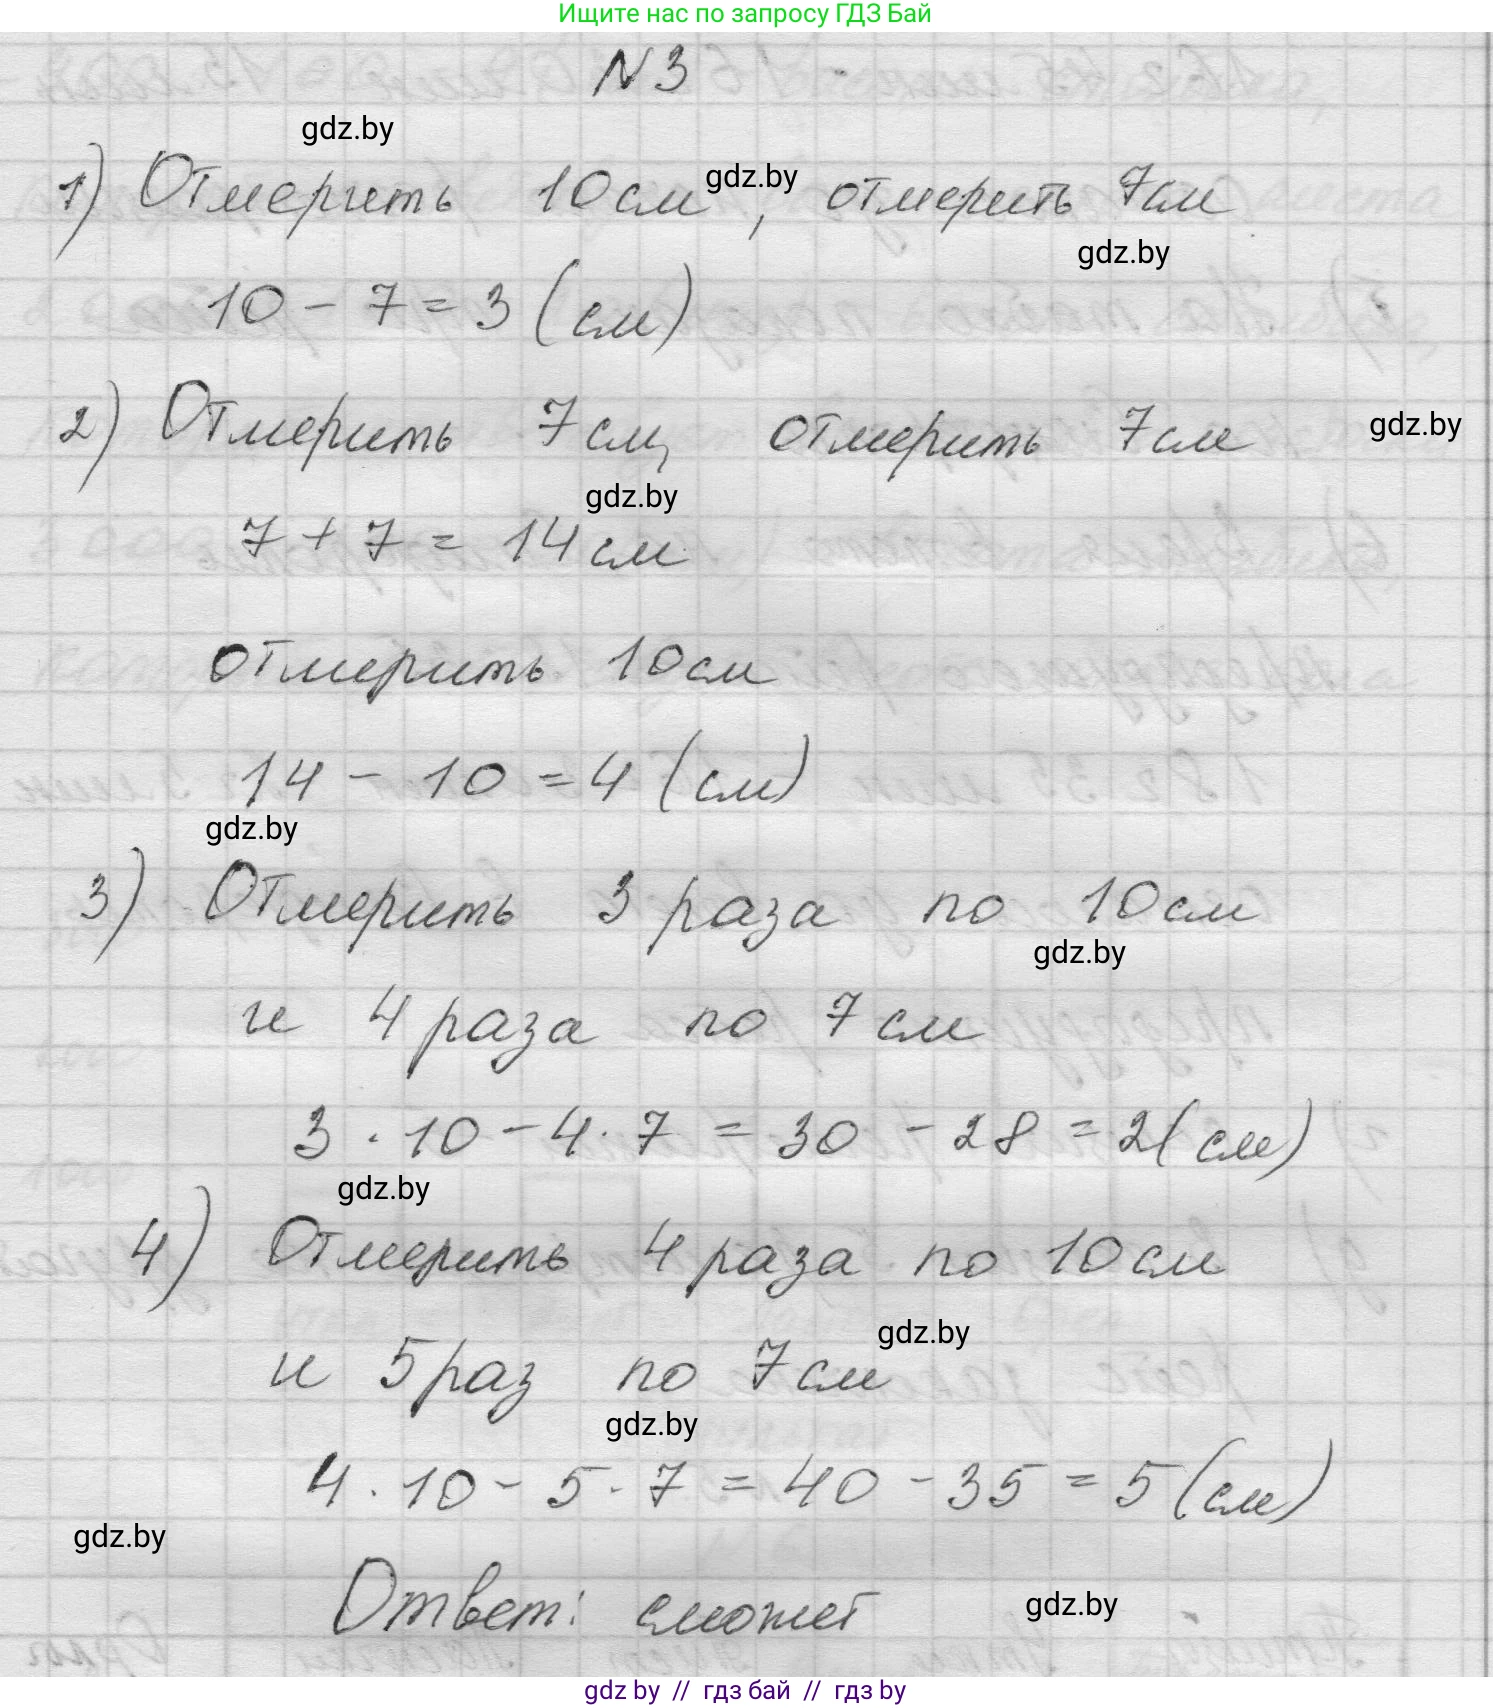 Ищите нас по запросу ГДЗ Бай
N 3
gdz.by
1) Отмерить 10 см, отмерить 7 см
gdz.by
gdz.by
10 - 7 = 3 (см)
2) Отмерить 7 см, отмерить 7 см
gdz.by
gdz.by
7 + 7 = 14 см
отмерить 10 см
14 - 10 = 4 (см)
gdz.by
3) Отмерить 3 раза по 10 см
gdz.by
и 4 раза по 7 см
3 · 10 - 4 · 7 = 30 - 28 = 2 (см)
gdz.by
4) Отмерить 4 раза по 10 см
gdz.by
и 5 раз по 7 см
gdz.by
4 · 10 - 5 · 7 = 40 - 35 = 5 (см)
gdz.by
Ответ: сможет
gdz.by
gdz by // гдз бай // гдз by